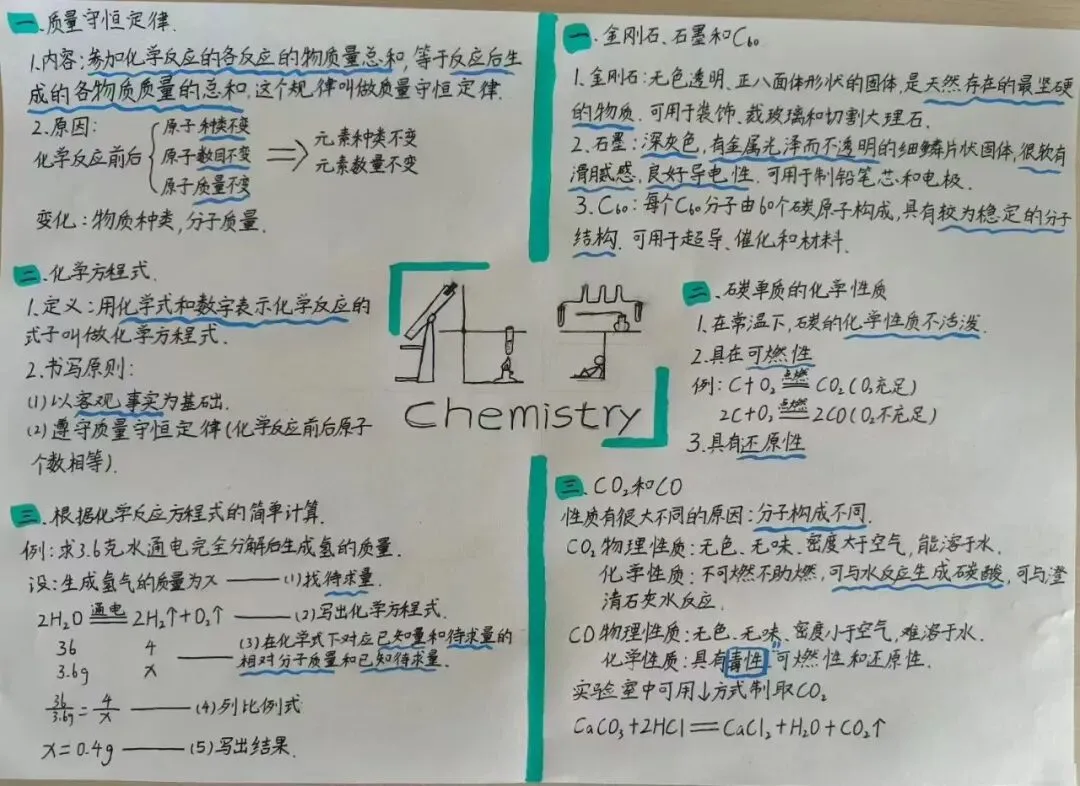 一、质量守恒定律.
1.内容:参加化学反应的各反应的物质量总和,等于反应后生
成的各物质质量的总和,这个规律叫做质量守恒定律.
2.原因:
化学反应前后
原子种类不变
原子数目不变
原子质量不变
元素种类不变
元素数量不变
变化:物质种类,分子质量.
二、化学方程式.
1.定义:用化学式和数字表示化学反应的
式子叫做化学方程式.
2.书写原则:
(1)以客观事实为基础.
(2)遵守质量守恒定律(化学反应前后原子
个数相等).
三、根据化学反应方程式的简单计算.
例:求3.6克水通电完全分解后生成氢的质量.
设:生成氢气的质量为x ——(1)找待求量.
2H₂O 通电 2H₂↑+O₂↑ ——(2)写出化学方程式.
36 4 ——(3)在化学式下对应已知量和待求量的
3.6g x 相对分子质量和已知待求量.
36/3.6g=4/x ——(4)列比例式
x=0.4g ——(5)写出结果.
Chemistry
一、金刚石、石墨和C₆₀
1.金刚石:无色透明、正八面体形状的固体,是天然存在的最坚硬
的物质.可用于装饰、裁玻璃和切割大理石.
2.石墨:深灰色,有金属光泽而不透明的细鳞片状固体,很软有
滑腻感,良好导电性.可用于制铅笔芯和电极.
3.C₆₀:每个C₆₀分子由60个碳原子构成,具有较为稳定的分子
结构.可用于超导、催化和材料.
二、石炭单质的化学性质
1.在常温下,碳的化学性质不活泼.
2.具在可燃性
例:C+O₂ 点燃 CO₂(O₂充足)
2C+O₂ 点燃 2CO(O₂不充足)
3.具有还原性
三、CO₂和CO
性质有很大不同的原因:分子构成不同.
CO₂物理性质:无色、无味、密度大于空气,能溶于水.
化学性质:不可燃不助燃,可与水反应生成碳酸,可与澄
清石灰水反应.
CO物理性质:无色、无味、密度小于空气,难溶于水.
化学性质:具有毒性"可燃性和还原性.
实验室中可用↓方式制取CO₂
CaCO₃+2HCl══CaCl₂+H₂O+CO₂↑